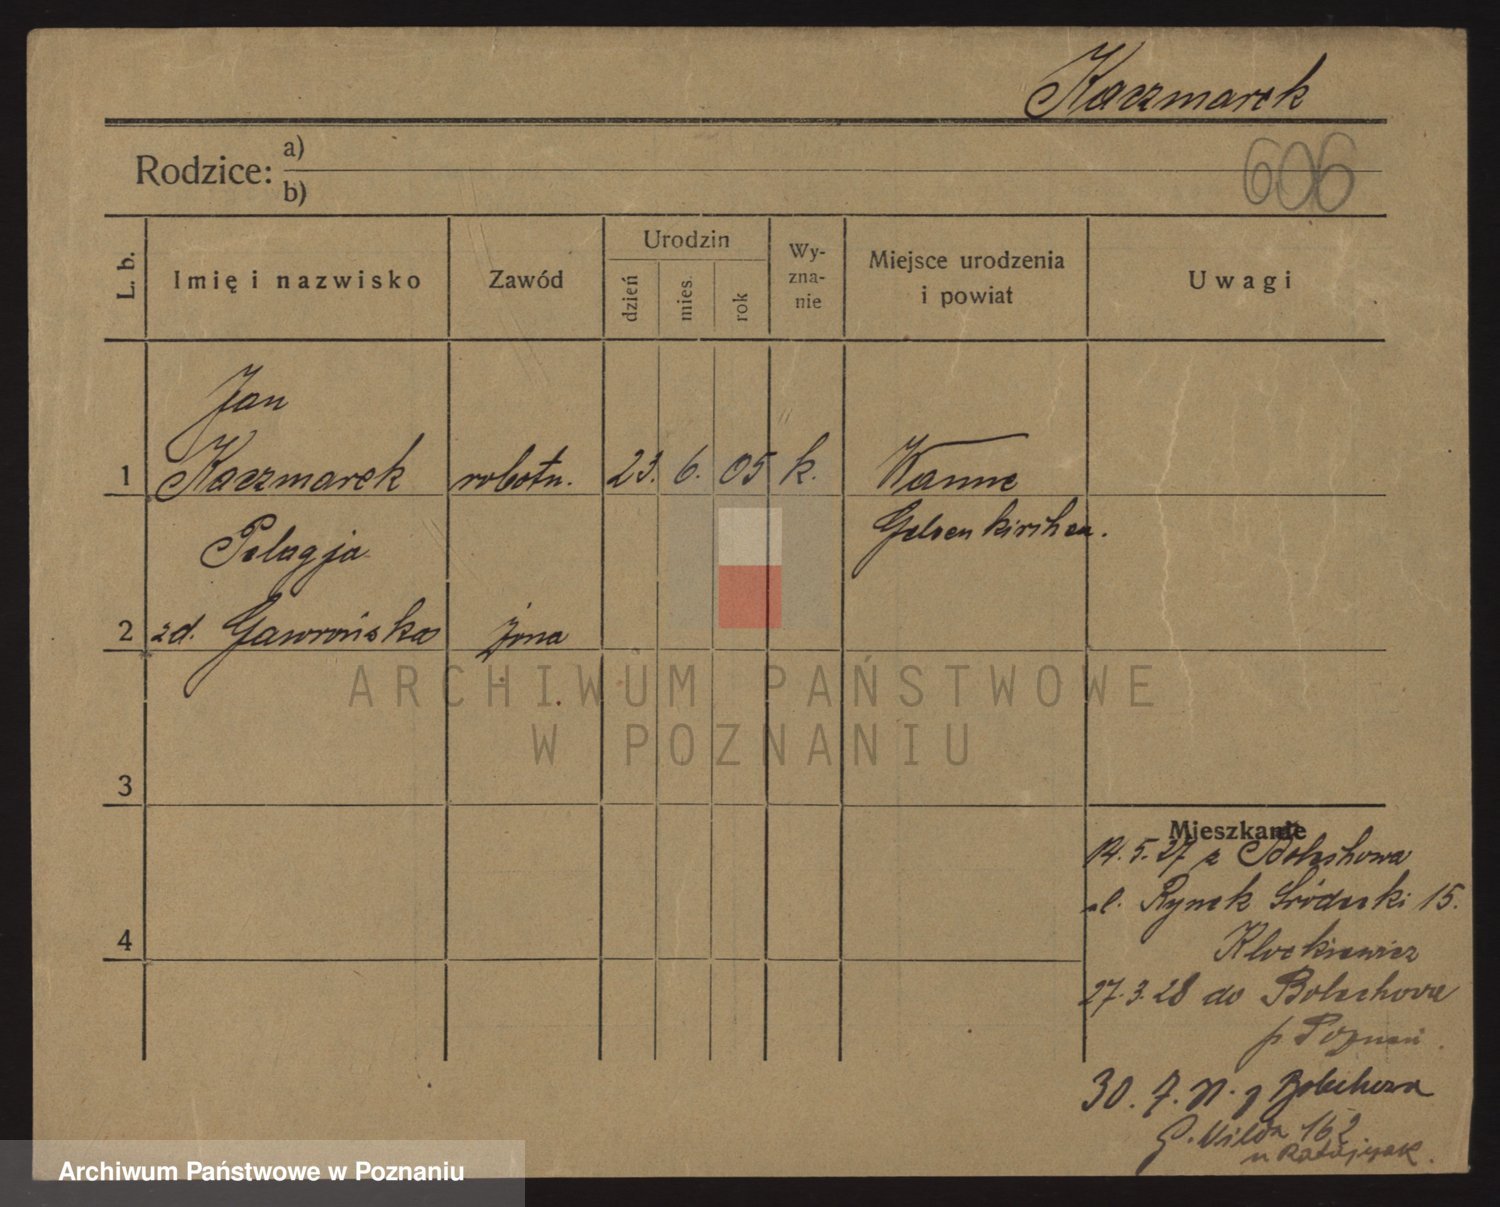 Kaczmarek
606
Rodzice: a)
b)
L. b.
Imię i nazwisko
Zawód
Urodzin
dzień
mies.
rok
Wy-
zna-
nie
Miejsce urodzenia
i powiat
Uwagi
Jan
1 Kaczmarek robotn. 23. 6. 05 k. Wanne
Gelsenkirchen.
Pelagja
2 zd. Gawrońska żona
3
4
Mieszkanie
14.5.27 z Bolechowa
ul. Rynek Śródecki 15.
Klockiewicz
27.3.28 do Bolechowa
p. Poznań.
30. 7. z Bolechowa
G. Wilda 162
u Ratajczak.
ARCHIWUM PAŃSTWOWE
W POZNANIU
Archiwum Państwowe w Poznaniu